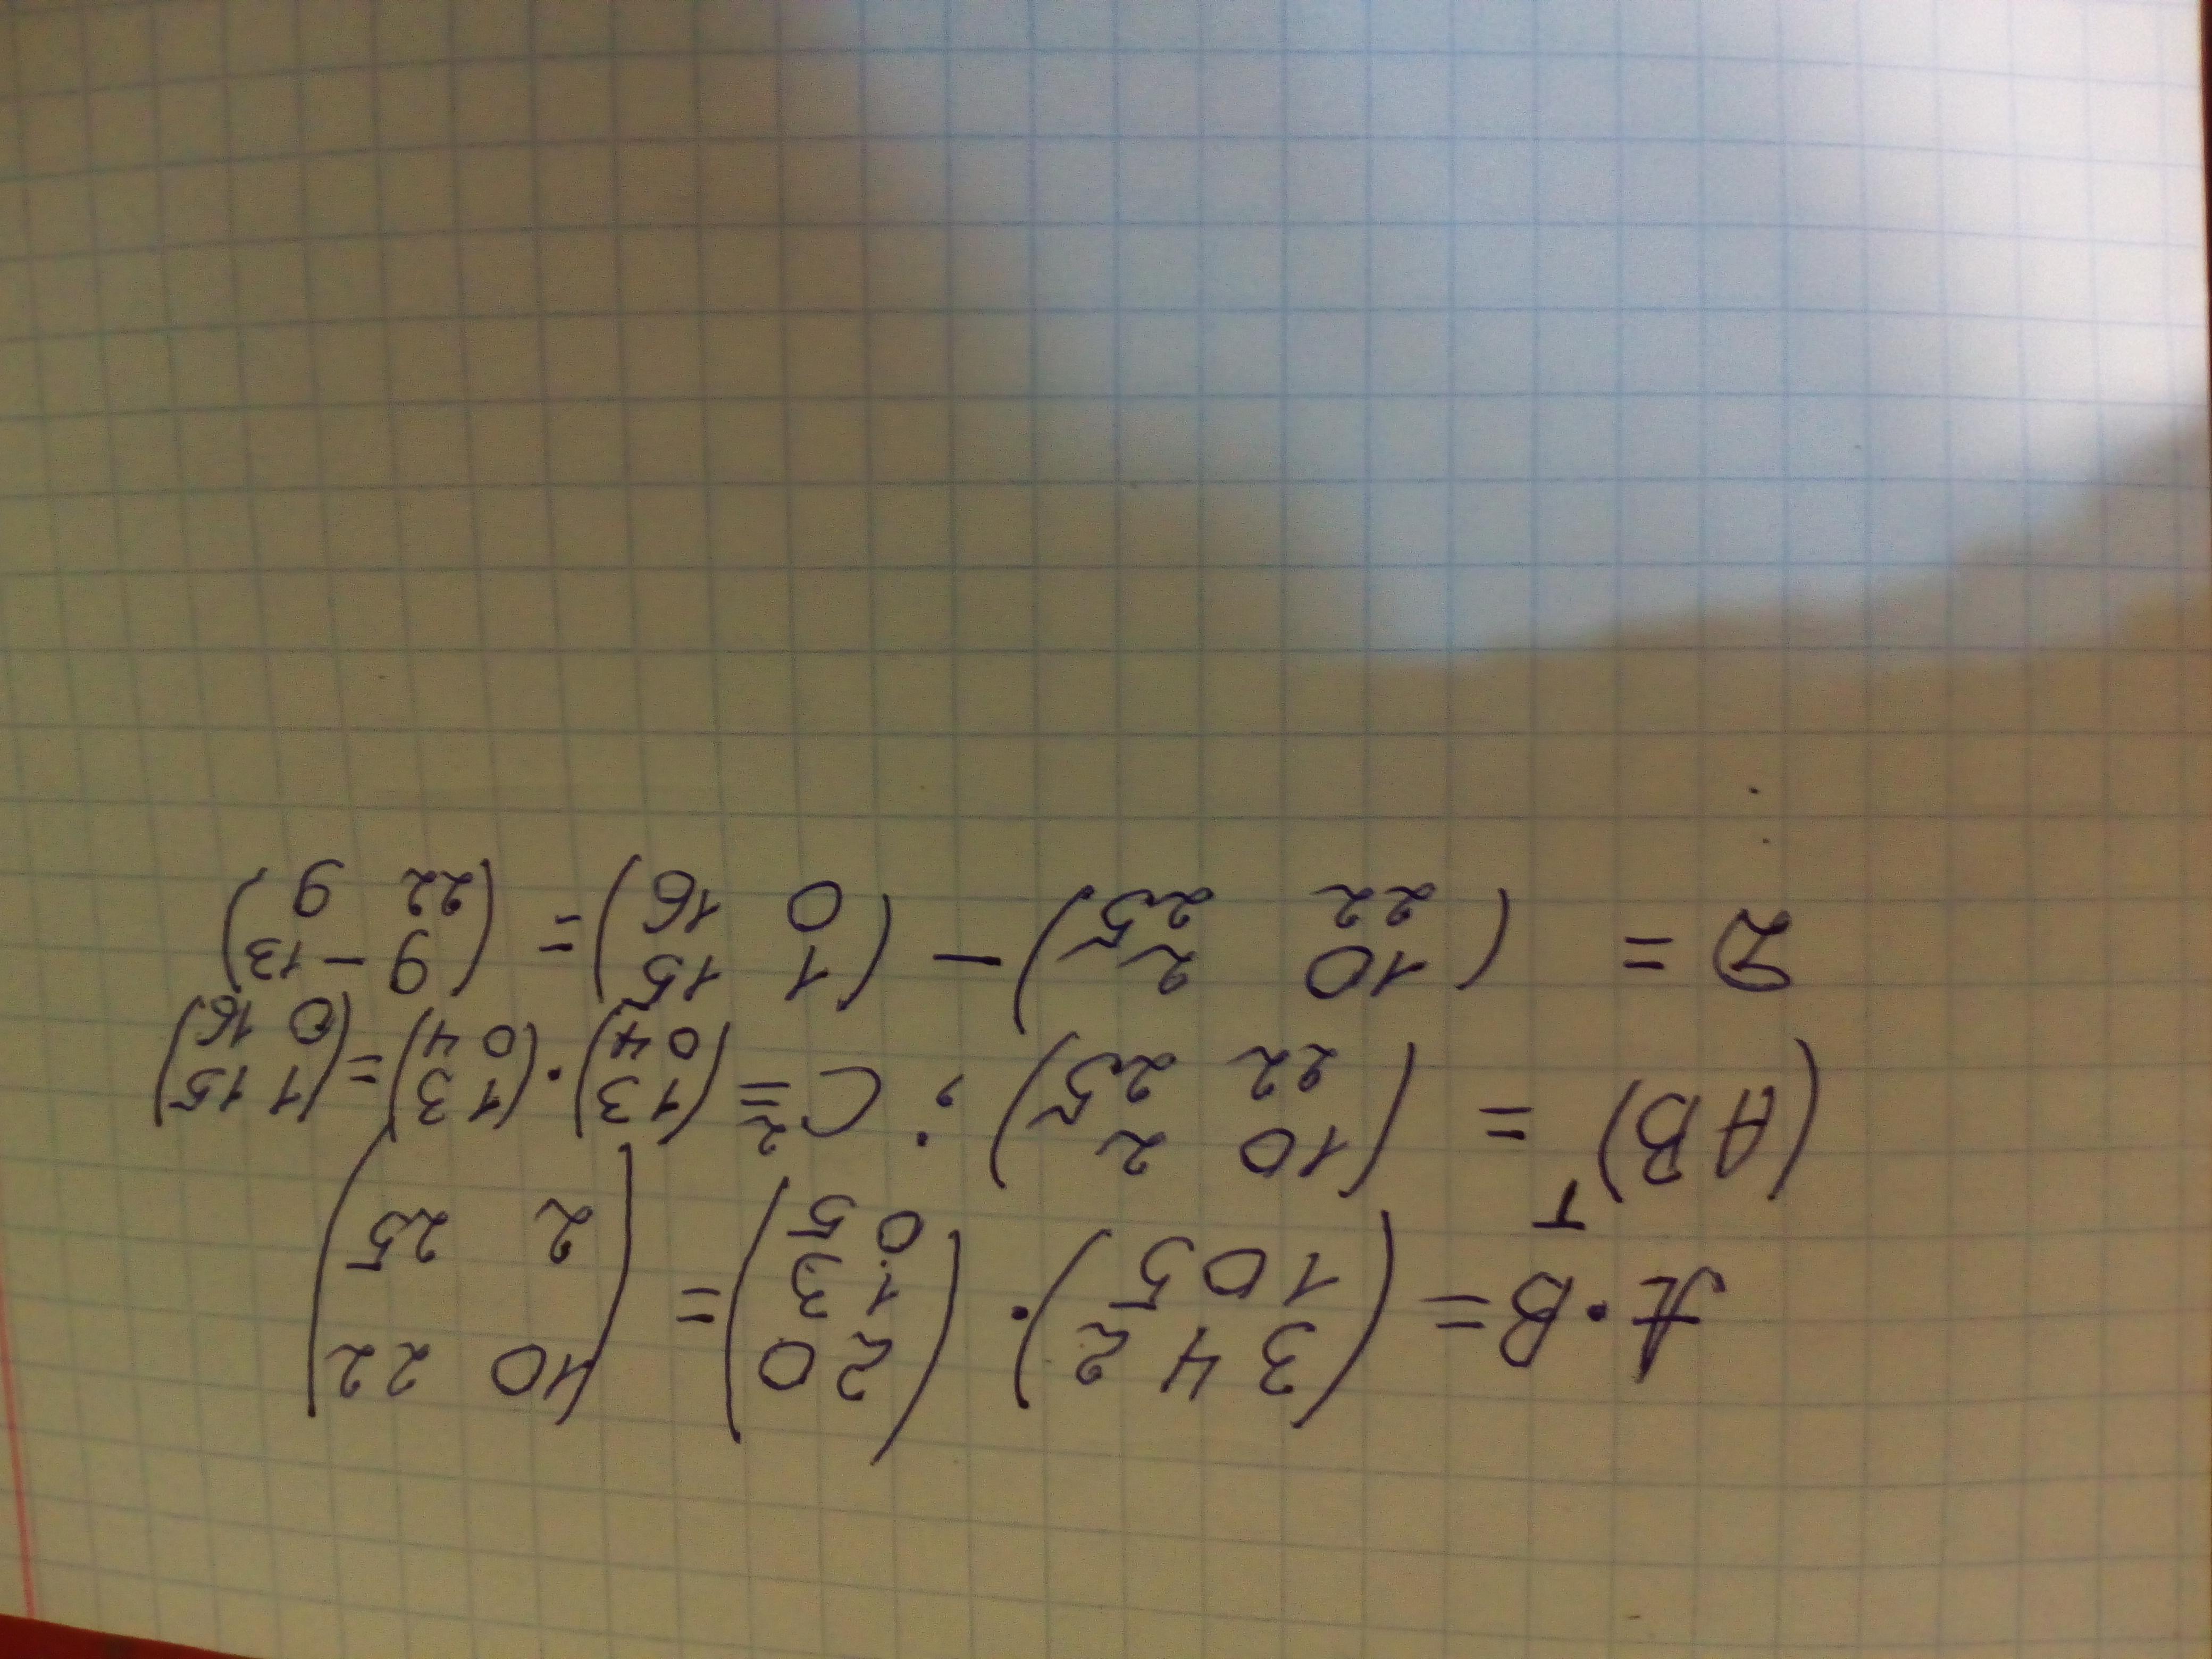 A · B = (3 4 2 / 1 0 5) · (2 0 / 1 3 / 0 5) = (10 22 / 2 25)
(AB)ᵀ = (10 2 / 22 25) ; C² = (1 3 / 0 4) · (1 3 / 0 4) = (1 15 / 0 16)
D = (10 2 / 22 25) − (1 15 / 0 16) = (9 −13 / 22 9)